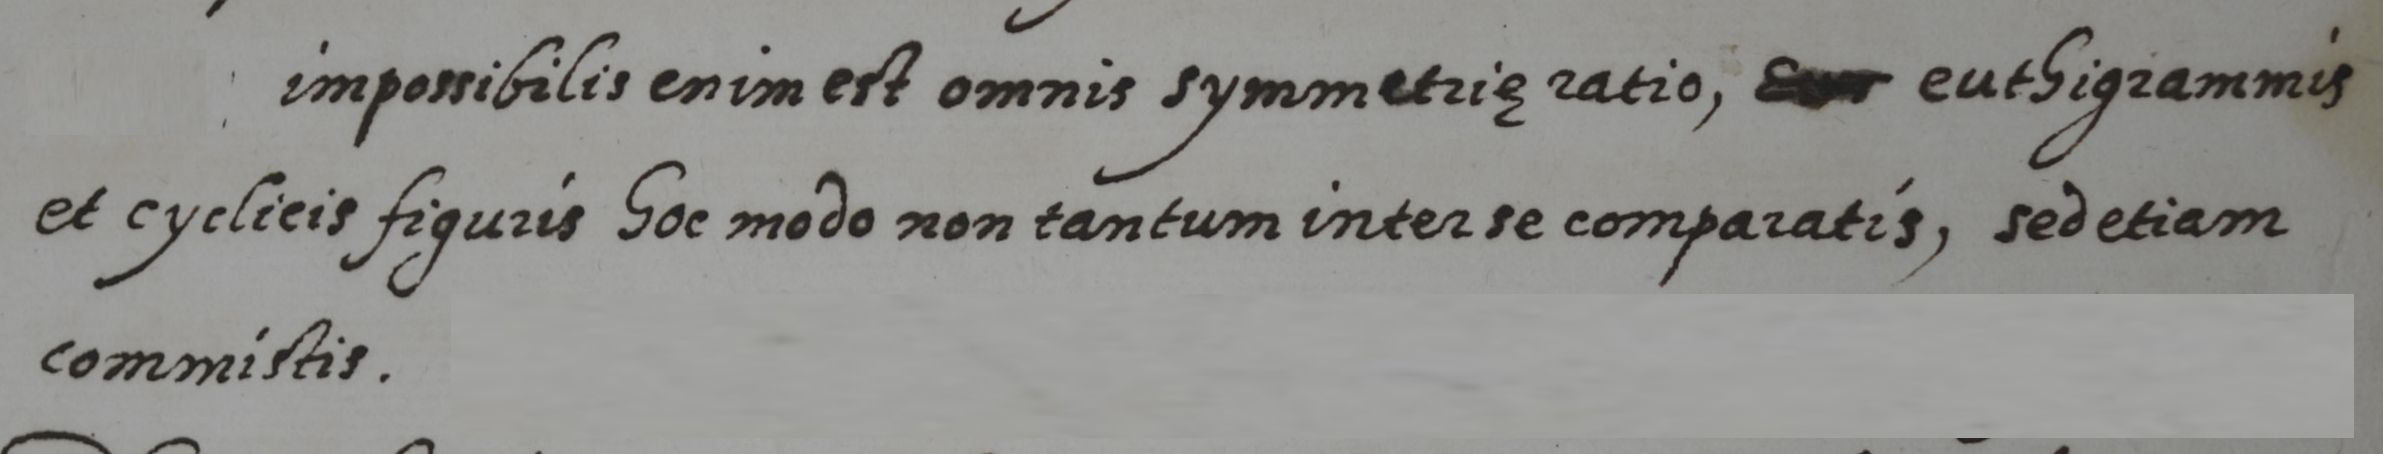 impossibilis enim est omnis symmetrię ratio, euthigrammis
et cyclicis figuris hoc modo non tantum inter se comparatis, sed etiam
commistis.